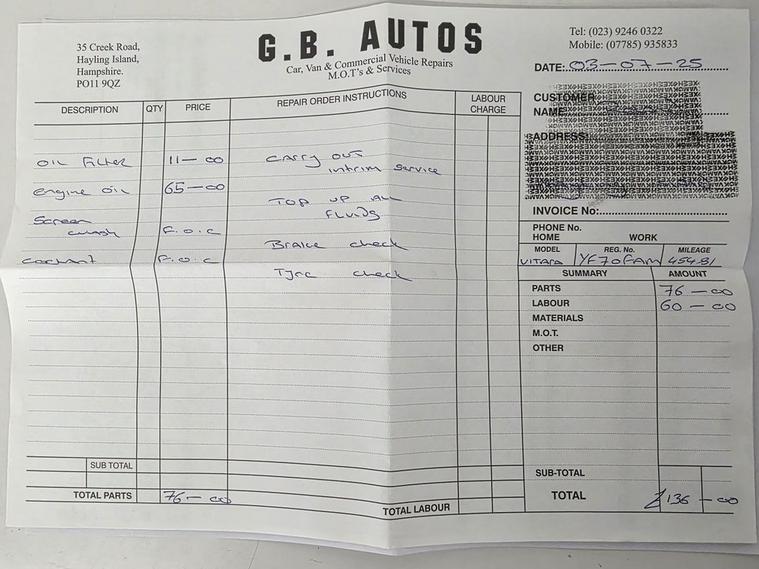 35 Creek Road,
Hayling Island,
Hampshire.
PO11 9QZ
G.B. AUTOS
Car, Van & Commercial Vehicle Repairs
M.O.T's & Services
Tel: (023) 9246 0322
Mobile: (07785) 935833
DATE: 03-07-25
CUSTOMER
NAME
ADDRESS:
INVOICE No:
PHONE No.
HOME WORK
MODEL REG. No. MILEAGE
VITARA YF70FAM 45481
DESCRIPTION QTY PRICE REPAIR ORDER INSTRUCTIONS LABOUR CHARGE
OIL Filter 11-00 CARRY OUT
intrim service
engine oil 65-00 TOP UP ALL
FLUIDS
Screen
wash F.O.C
Brake check
coolant F.O.C
Tyre check
SUMMARY AMOUNT
PARTS 76-00
LABOUR 60-00
MATERIALS
M.O.T.
OTHER
SUB TOTAL
TOTAL PARTS 76-00
TOTAL LABOUR
SUB-TOTAL
TOTAL £136-00